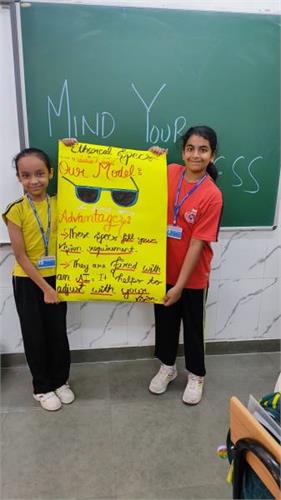 MIND YOUR
ESS
Ethereal Specs
Our Model:
Advantages:
→ These specs fill your
vision requirement.
→ They are fixed with
an AI. It helps to
adjust with your
vision